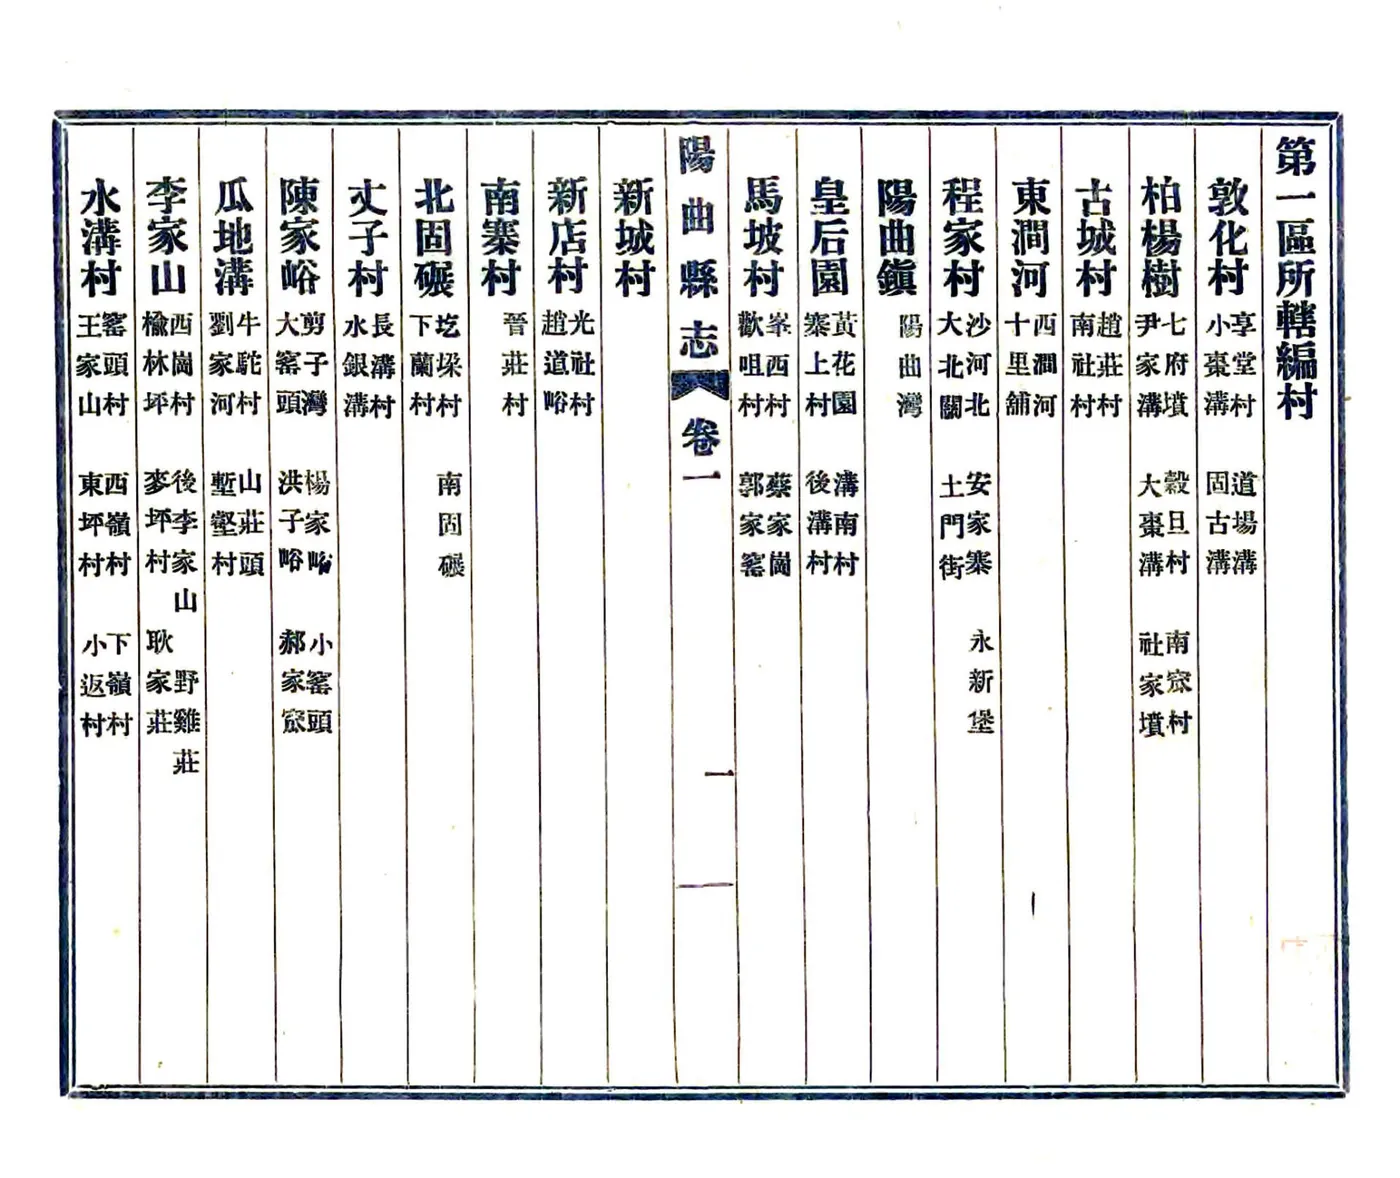 第一區所轄編村
敦化村 享堂村 小棗溝 道場溝 固古溝
柏楊樹 七府墳 尹家溝 穀旦村 大棗溝 南窊村 社家墳
古城村 趙莊村 南社村
東澗河 西澗河 十里舖
程家村 沙河北 大北關 安家寨 土門街 永新堡
陽曲鎮 陽曲灣
皇后園 黃花園 寨上村 溝南村 後溝村
馬坡村 峯西村 歡咀村 蔡家崗 郭家窰
陽曲縣志 卷一 一
新城村
新店村 光社村 趙道峪
南寨村 晉莊村
北固碾 圪垛村 下蘭村 南固碾
丈子村 長溝村 水銀溝
陳家峪 剪子灣 大窰頭 楊家峪 洪子峪 小窰頭 郝家窊
瓜地溝 牛駝村 劉家河 山莊頭 塹壑村
李家山 西崗村 榆林坪 後李家山 麥坪村 野雞莊 耿家莊
水溝村 窰頭村 王家山 西嶺村 東坪村 下嶺村 小返村